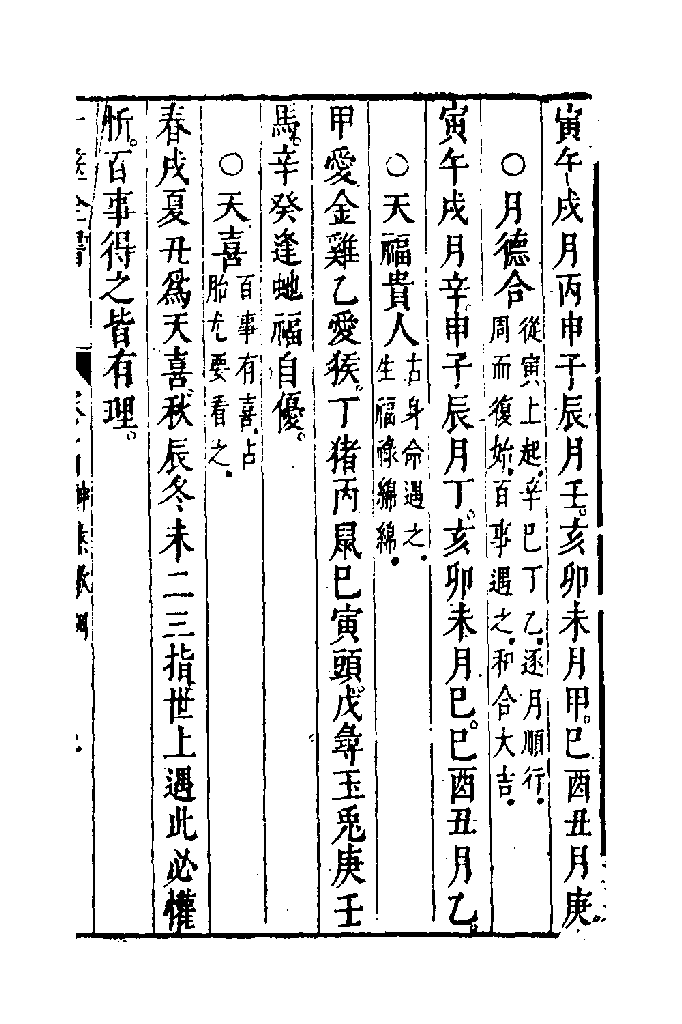 寅午戌月丙申子辰月壬。亥卯未月甲。巳酉丑月庚.
○月德合
從寅上起.辛巳丁乙.逐月順行.
周而復始.百事遇之.和合大吉.
寅午戌月辛。申子辰月丁。亥卯未月巳。巳酉丑月乙。
○天福貴人
古身命遇之.
生福祿綿綿.
甲愛金雞乙愛猴。丁猪丙鼠巳寅頭。戊尋玉兎庚壬
馬。辛癸逢虵福自優。
○天喜
百事有喜.占
胎尤要看之.
春戌夏丑爲天喜。秋辰冬未二三指世上遇此必權
忻。百事得之皆有理。